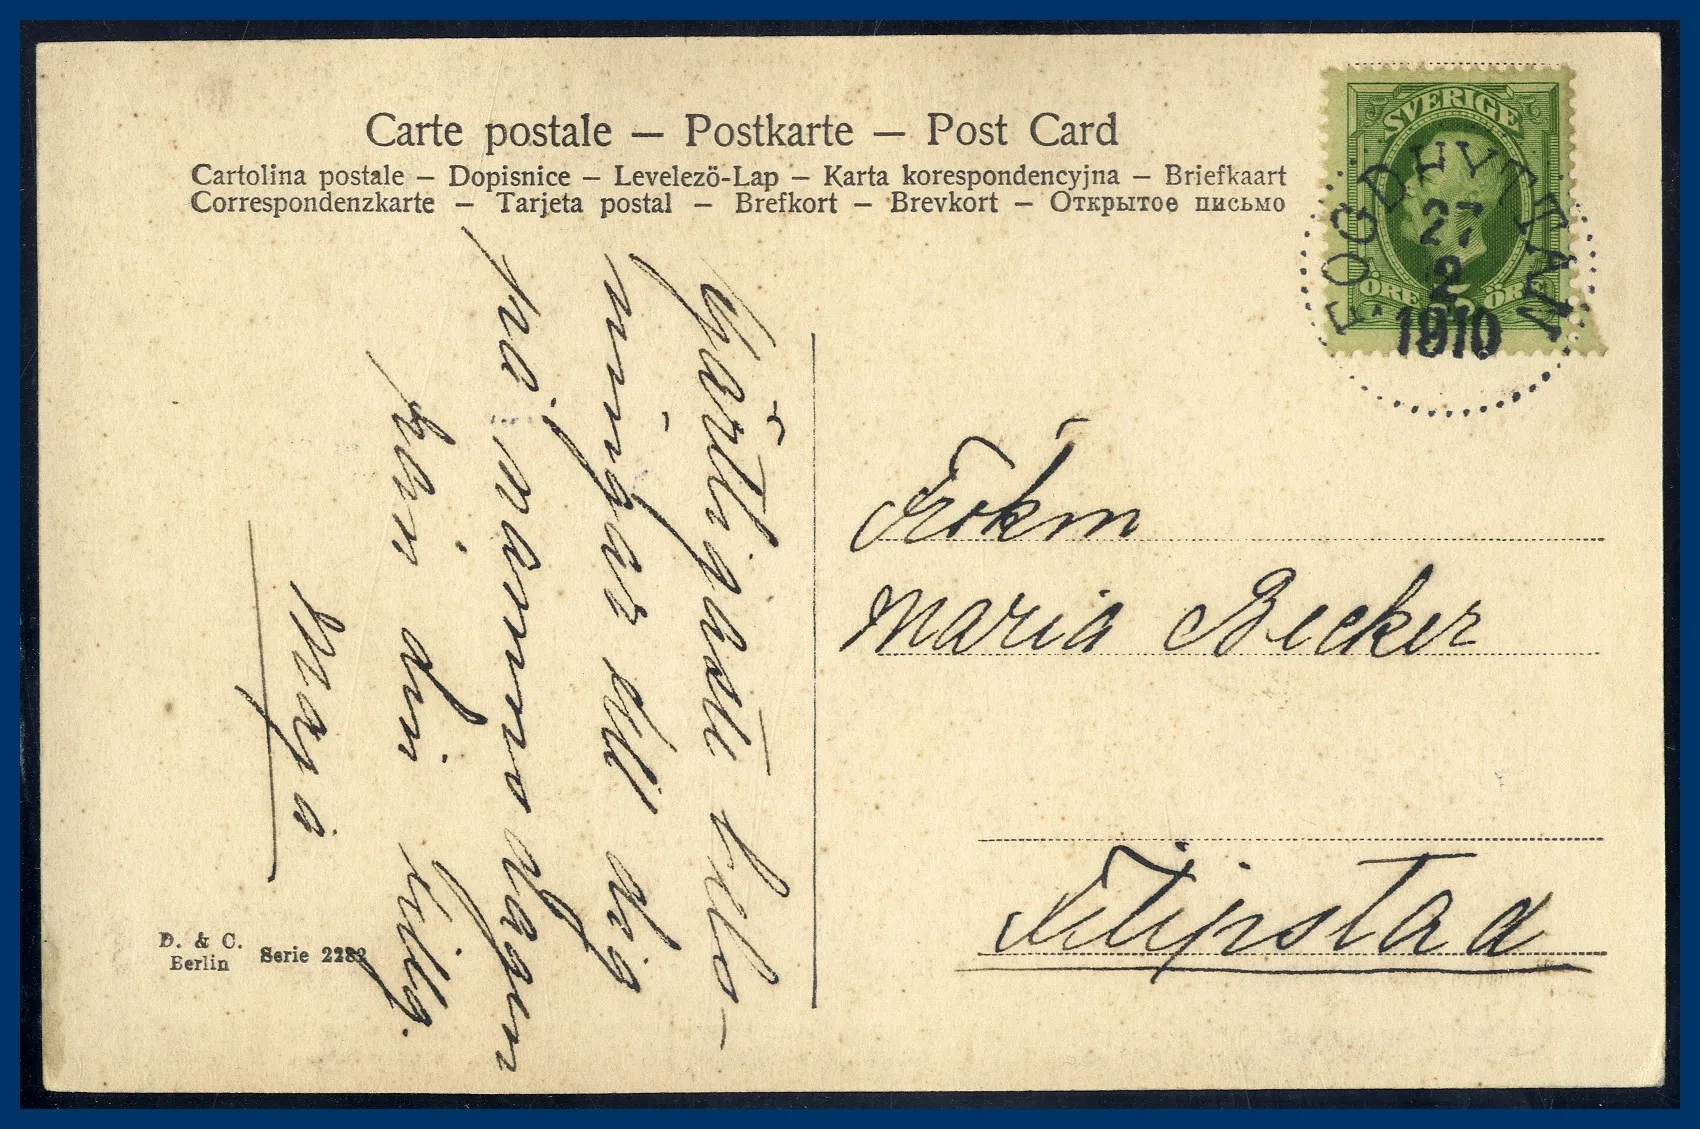 Carte postale – Postkarte – Post Card
Cartolina postale – Dopisnice – Levelezö-Lap – Karta korespondencyjna – Briefkaart
Correspondenzkarte – Tarjeta postal – Brefkort – Brevkort – Открытое письмо
SVERIGE
ÖRE 5 ÖRE
FOGDHYTTAN
27
2
1910
till dig
på namnsdagen
din tillg.
Maja
Frökn
Maria Becker
Filipstad
D. & C.
Berlin
Serie 2282